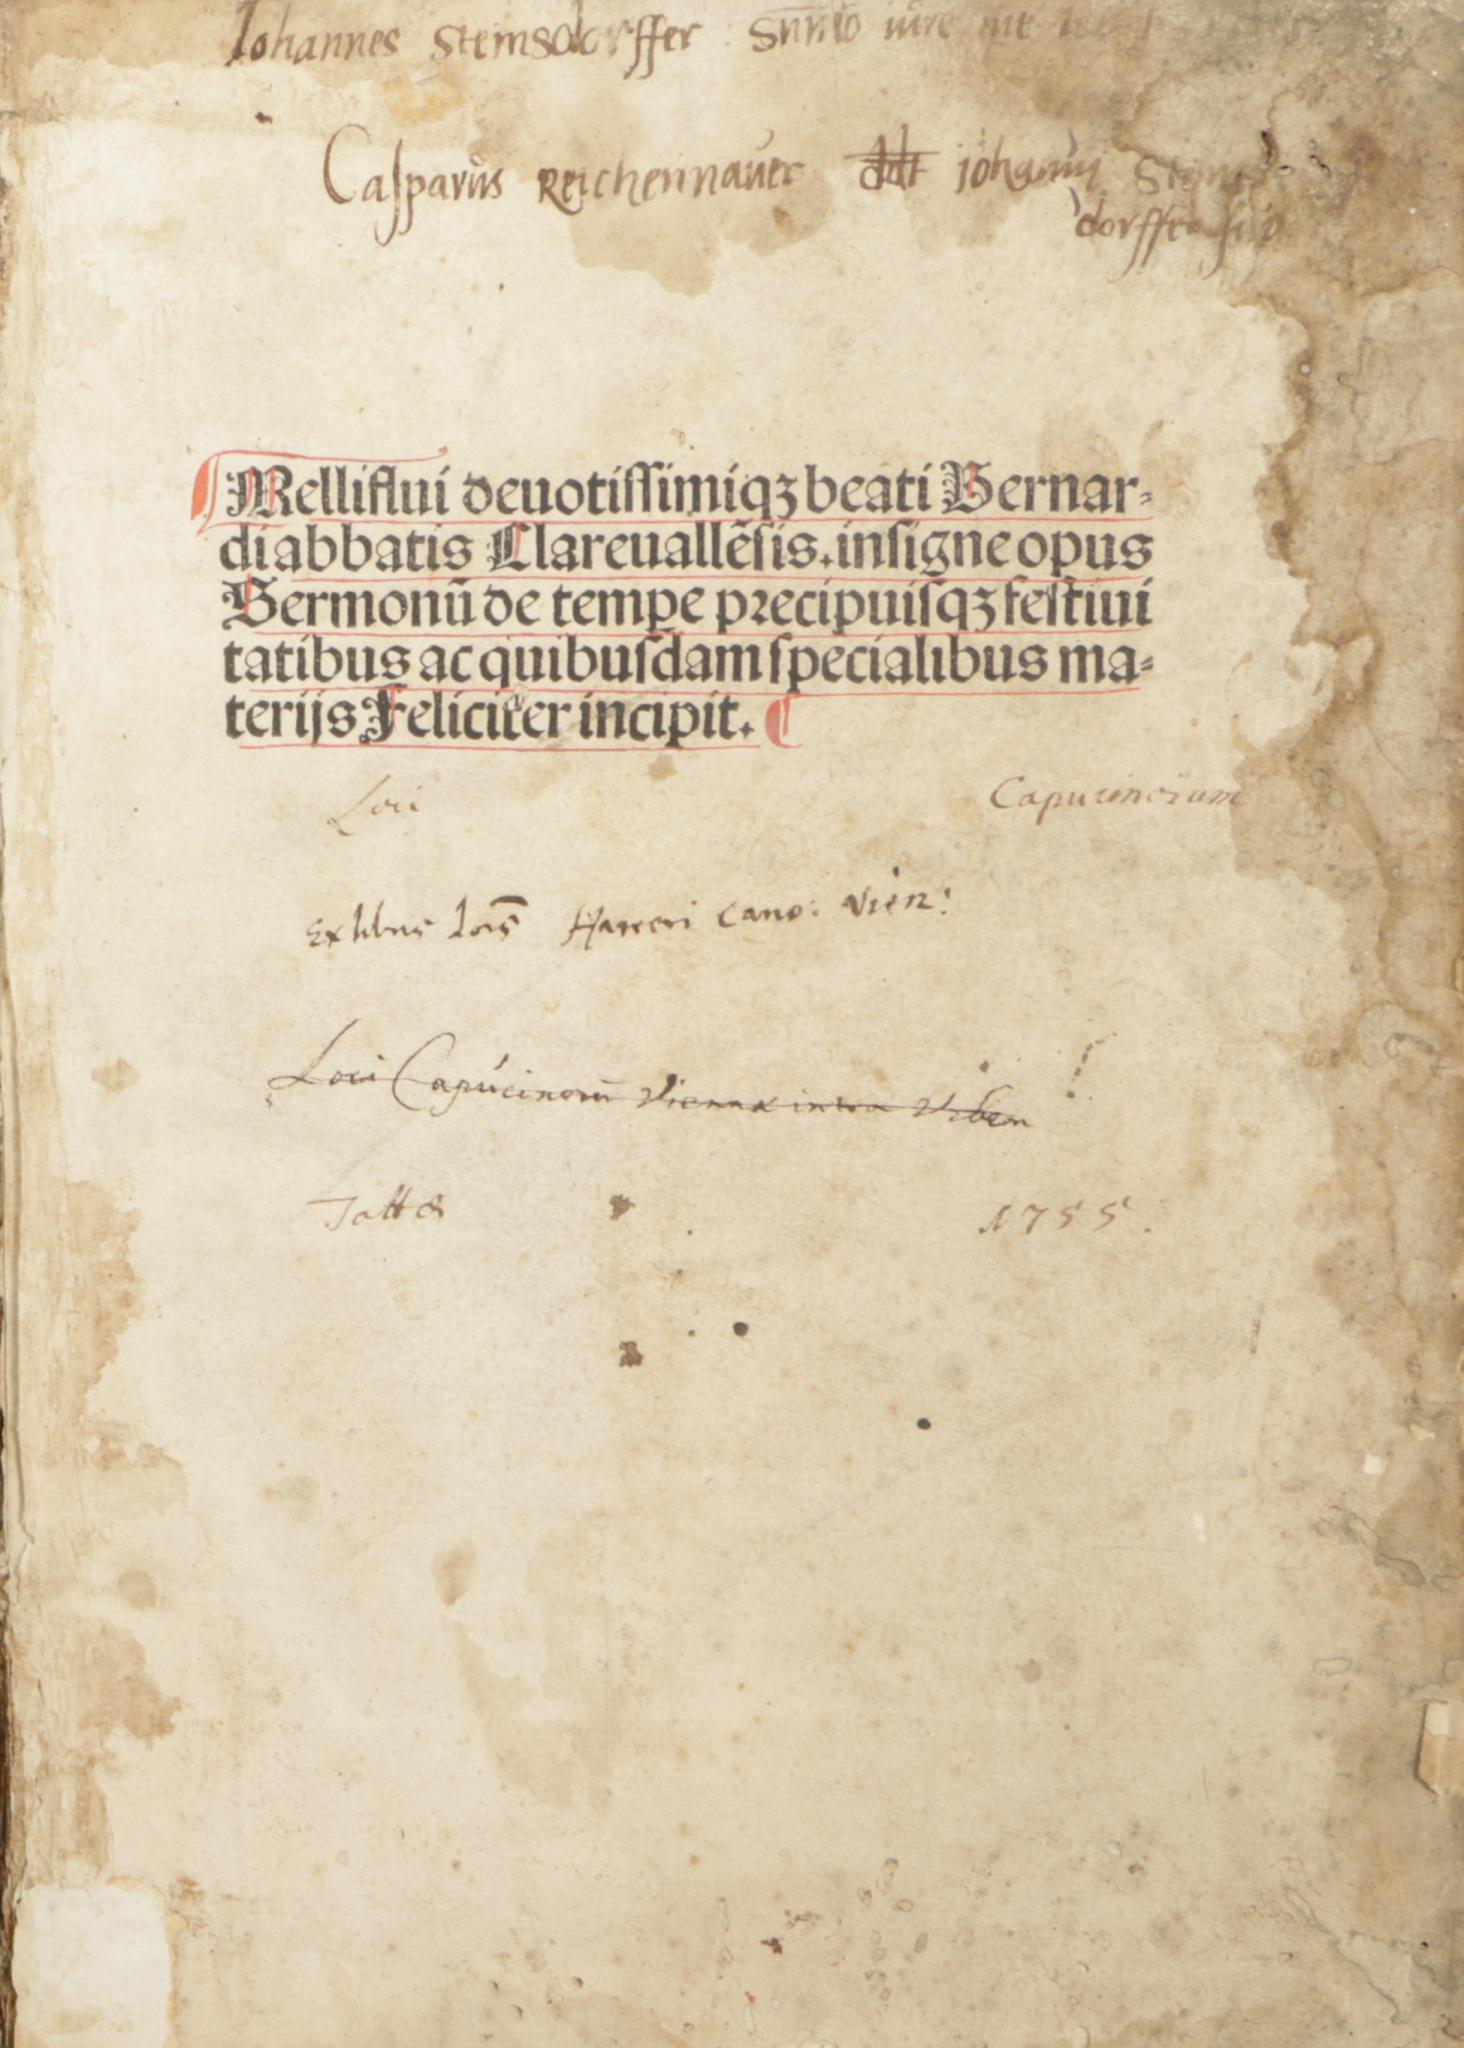 Johannes Steinsdorffer Su̅mo iure me
Casparus Reichennauer ddt Johanni Steins-
dorffer suo
Mellifлui deuotissimiqꝫ beati Bernar-
di abbatis Clareuallēsis. insigne opus
Sermonū de tempe precipuisqꝫ festiui
tatibus ac quibusdam specialibus ma-
terijs Feliciter incipit.
Loci Capucinorum
Ex libris Jois̅ Harreri Cano: Vien:
Loci Capucinorū Viennæ intra Urbem
Tattæ 1755.